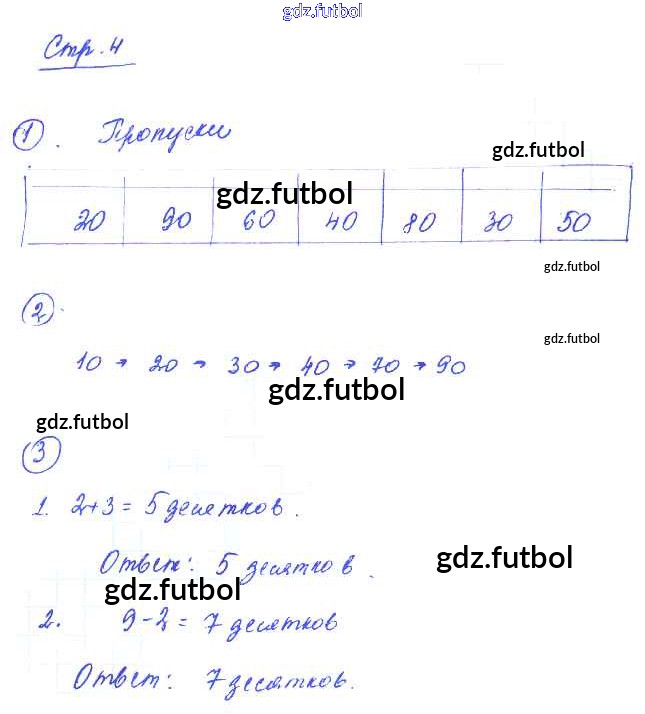 gdz.futbol
Стр. 4
1. Пропуски
gdz.futbol
20 90 60 40 80 30 50
gdz.futbol
gdz.futbol
2.
gdz.futbol
10 → 20 → 30 → 40 → 70 → 90
gdz.futbol
gdz.futbol
3
1. 2+3 = 5 десятков.
Ответ: 5 десятков.
gdz.futbol
gdz.futbol
2. 9-2 = 7 десятков
Ответ: 7 десятков.